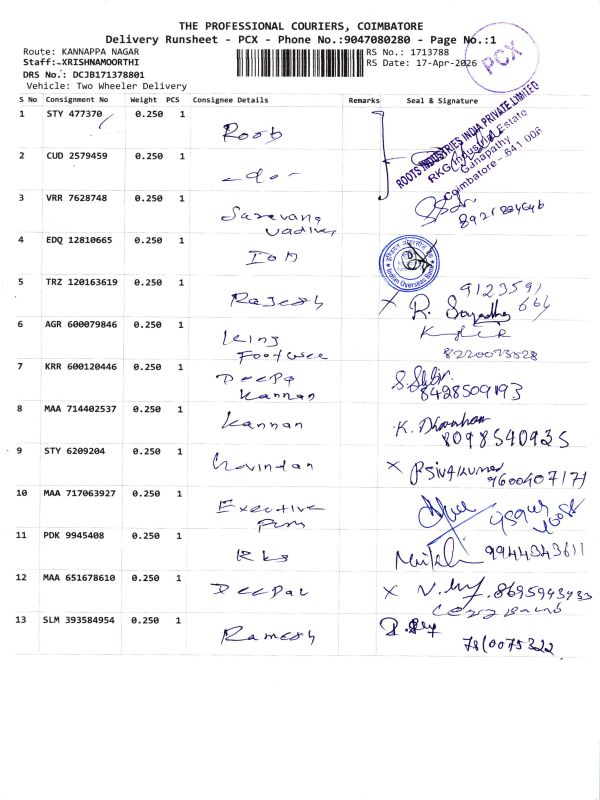 THE PROFESSIONAL COURIERS, COIMBATORE
Delivery Runsheet - PCX - Phone No.:9047080280 - Page No.:1
Route: KANNAPPA NAGAR
RS No.: 1713788
Staff:-KRISHNAMOORTHI
RS Date: 17-Apr-2026
DRS No.: DCJB171378801
Vehicle: Two Wheeler Delivery
PCX
S No Consignment No Weight PCS Consignee Details Remarks Seal & Signature
1 STY 477370 0.250 1 Roots
ROOTS INDUSTRIES INDIA PRIVATE LIMITED
RKG Industrial Estate
Ganapathy
Coimbatore - 641 006
2 CUD 2579459 0.250 1 -do-
3 VRR 7628748 0.250 1 Saravana
Vadivel
4 EDQ 12810665 0.250 1 IOB
Indian Overseas Bank
5 TRZ 120163619 0.250 1 Rajesh
9123591
664
6 AGR 600079846 0.250 1 King
Footwee
7 KRR 600120446 0.250 1 Deepa
Kannan
8428509193
8 MAA 714402537 0.250 1 Kannan
8098540935
9 STY 6209204 0.250 1 Govindan
X P Sivakumar
9600407171
10 MAA 717063927 0.250 1 Executive
11 PDK 9945408 0.250 1 Rks
9944343611
12 MAA 651678610 0.250 1 Deepak
X 8695943433
13 SLM 393584954 0.250 1 Ramesh
7810075322